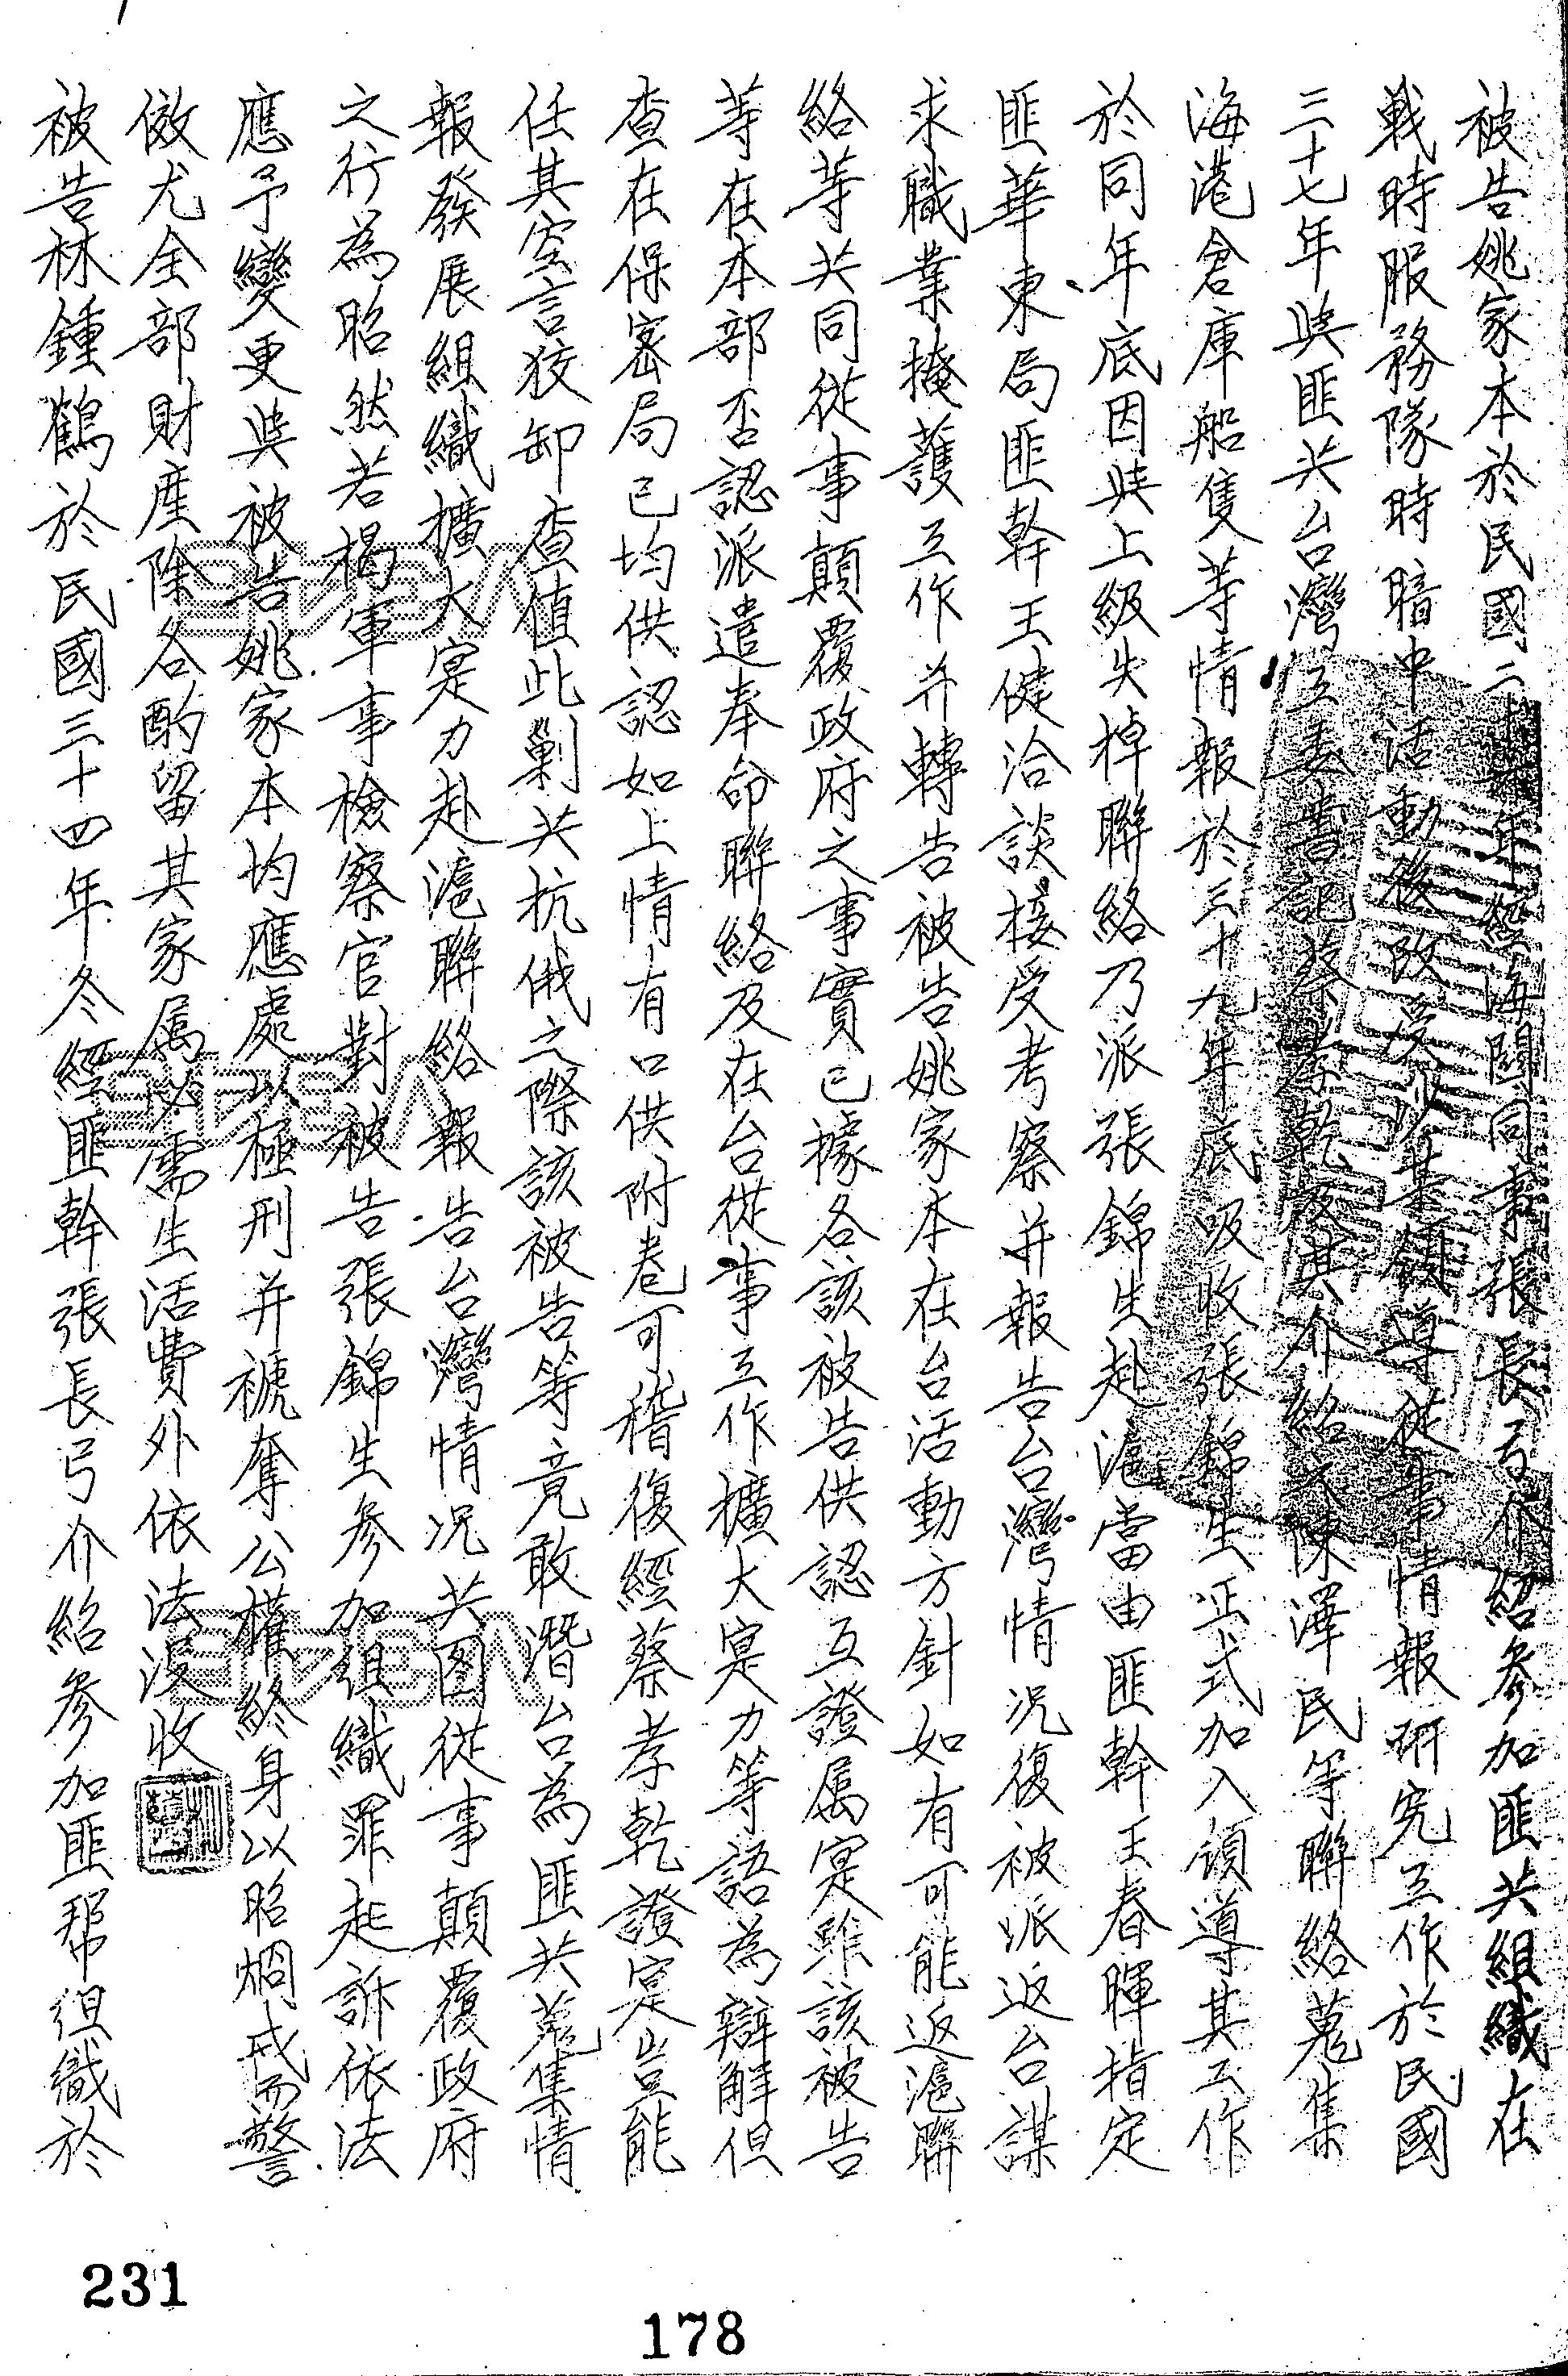 被告姚家本於民國二十年經海關同事張長弓介紹參加匪共組織在
戰時服務隊時暗中活動後改受沙某領導從事情報研究工作於民國
三十七年與匪共台灣工委書記蔡孝乾及其介紹之陳澤民等聯絡蒐集
海港倉庫船隻等情報於三十九年底吸收張錦生正式加入領導其工作
於同年底因與上級失掉聯絡乃派張錦生赴滬當由匪幹王春暉指定
匪華東局匪幹王健洽談接受考察并報告台灣情況復被派返台謀
求職業掩護工作并轉告被告姚家本在台活動方針如有可能返滬聯
絡等共同從事顛覆政府之事實已據各該被告供認互證属寔雖該被告
等在本部否認派遣奉命聯絡及在台從事工作擴大寔力等語為辯解但
查在保密局已均供認如上情有口供附卷可稽復經蔡孝乾證寔豈能
任其空言狡卸查值此剿共抗俄之際該被告等竟敢潛台為匪共蒐集情
報發展組織擴大寔力赴滬聯絡報告台灣情況共图從事顛覆政府
之行為昭然若揭軍事檢察官對被告張錦生參加組織罪起訴依法
應予變更與被告姚家本均應處以極刑并褫奪公權終身以昭烱戒而警
傚尤全部財產除各酌留其家属必需生活費外依法沒收
被告林鍾鶴於民國三十四年冬經匪幹張長弓介紹參加匪帮組織於
231
178